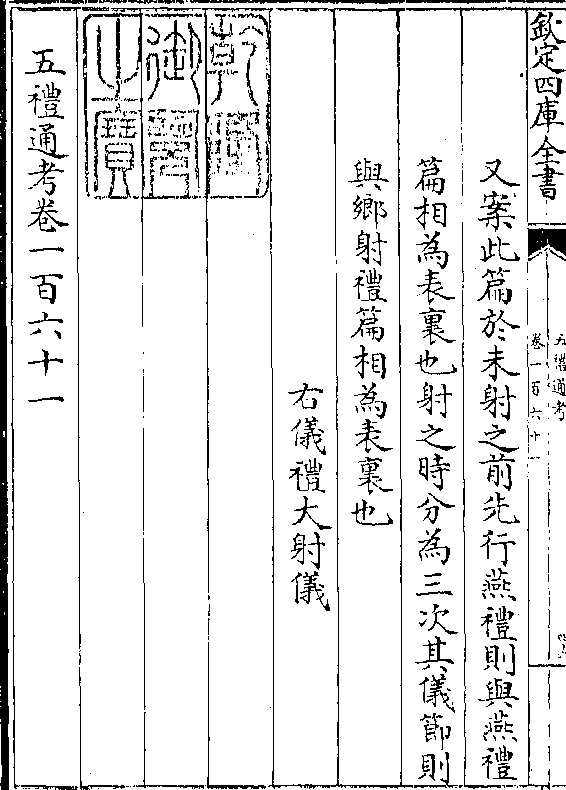 欽定四庫全書
五禮通考
卷一百六十一
又案此篇於未射之前先行燕禮則與燕禮
篇相為表裏也射之時分為三次其儀節則
與鄉射禮篇相為表裏也
右儀禮大射儀
乾隆
御覽
之寶
五禮通考卷一百六十一